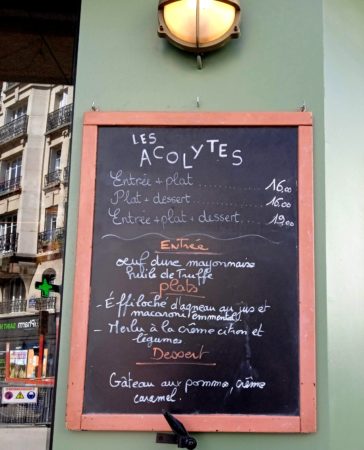 LES
ACOLYTES
Entrée + plat ............ 16,00
Plat + dessert ............ 16,00
Entrée + plat + dessert. 19,00
Entrée
oeuf dure mayonnaise
huile de Truffe
plats
- Éffiloché d'agneau au jus et
macaroni emmental
- Merlu à la crème citron et
légumes
Dessert
Gâteau aux pomme, crème
caramel.